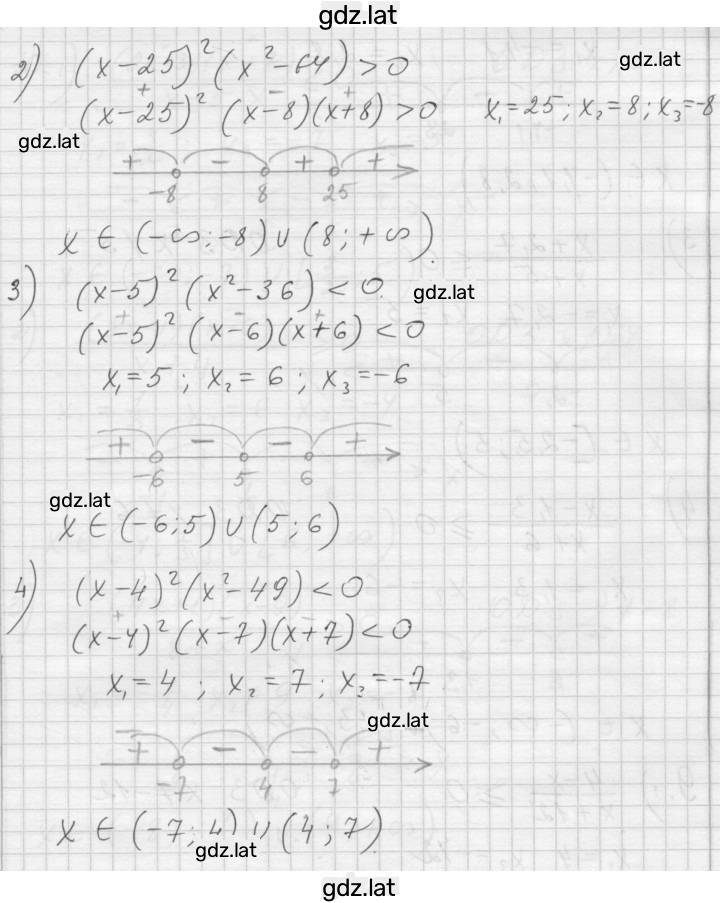 gdz.lat
2) (x-25)² (x²-64) > 0
gdz.lat
+ - +
(x-25)² (x-8)(x+8) > 0 x₁=25; x₂=8; x₃=-8
gdz.lat
+ - + +
-8 8 25
x ∈ (-∞; -8) ∪ (8; +∞).
3) (x-5)² (x²-36) < 0.
gdz.lat
+ - +
(x-5)² (x-6)(x+6) < 0
x₁=5; x₂=6; x₃=-6
+ - - +
-6 5 6
gdz.lat
x ∈ (-6; 5) ∪ (5; 6)
4) (x-4)² (x²-49) < 0
+ - -
(x-4)² (x-7)(x+7) < 0
x₁=4; x₂=7; x₃=-7
gdz.lat
+ - - +
-7 4 7
x ∈ (-7; 4) ∪ (4; 7)
gdz.lat
gdz.lat